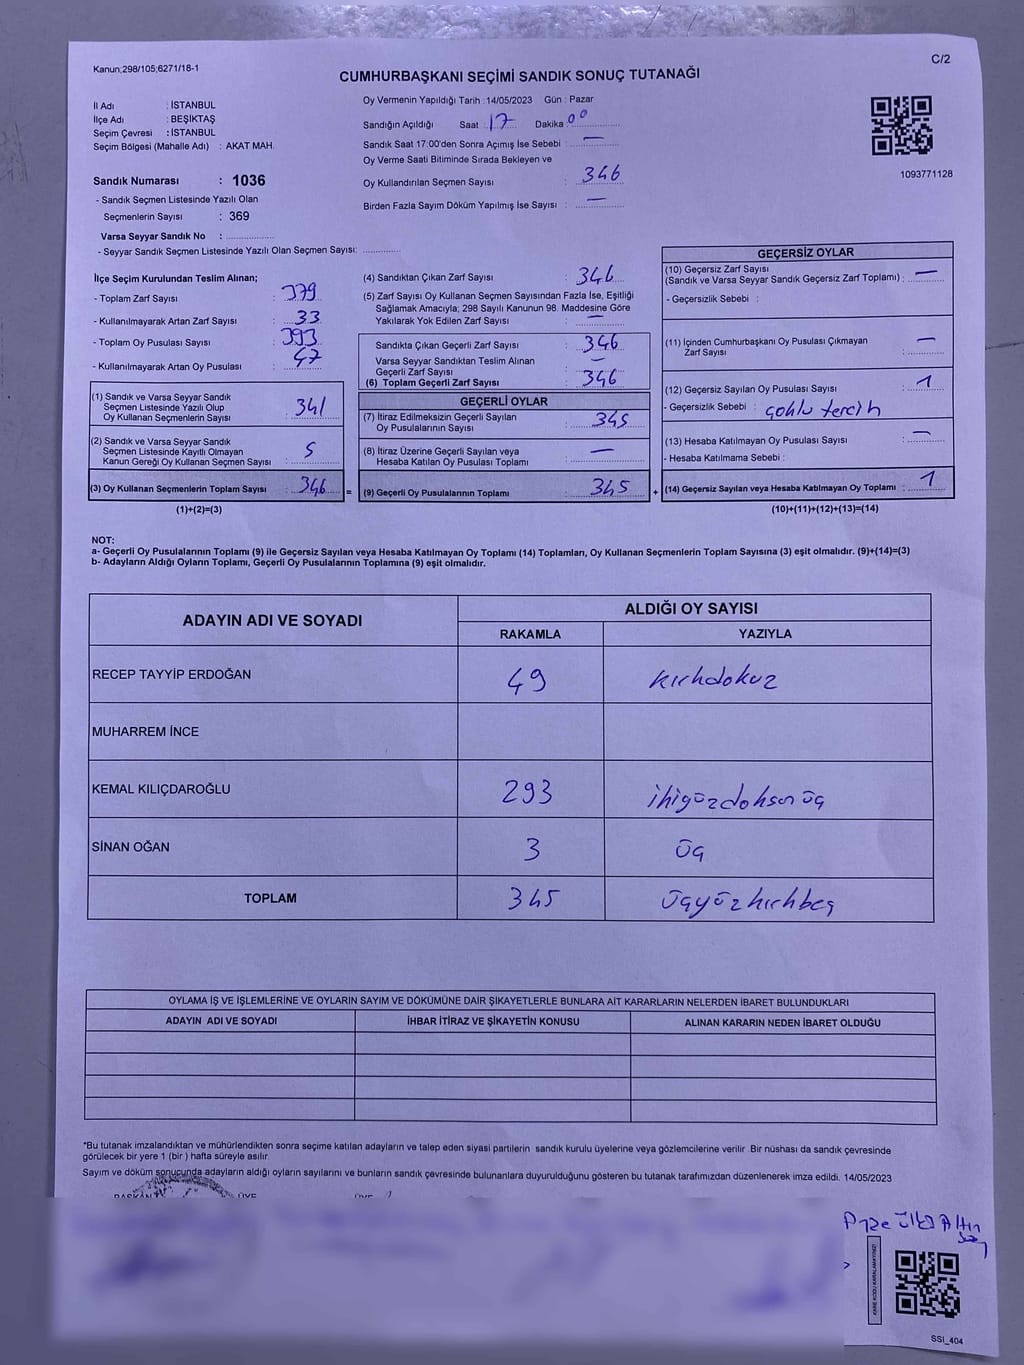 Kanun;298/105;6271/18-1
C/2
CUMHURBAŞKANI SEÇİMİ SANDIK SONUÇ TUTANAĞI
İl Adı : İSTANBUL
İlçe Adı : BEŞİKTAŞ
Seçim Çevresi : İSTANBUL
Seçim Bölgesi (Mahalle Adı) : AKAT MAH.
Sandık Numarası : 1036
- Sandık Seçmen Listesinde Yazılı Olan
Seçmenlerin Sayısı : 369
Varsa Seyyar Sandık No :
- Seyyar Sandık Seçmen Listesinde Yazılı Olan Seçmen Sayısı:
Oy Vermenin Yapıldığı Tarih : 14/05/2023 Gün : Pazar
Sandığın Açıldığı Saat : 17 Dakika : 00
Sandık Saat 17:00'den Sonra Açımış İse Sebebi : —
Oy Verme Saati Bitiminde Sırada Bekleyen ve
Oy Kullandırılan Seçmen Sayısı : 346
Birden Fazla Sayım Döküm Yapılmış İse Sayısı : —
1093771128
İlçe Seçim Kurulundan Teslim Alınan;
- Toplam Zarf Sayısı : 379
- Kullanılmayarak Artan Zarf Sayısı : 33
- Toplam Oy Pusulası Sayısı : 393
- Kullanılmayarak Artan Oy Pusulası : 47
(1) Sandık ve Varsa Seyyar Sandık
Seçmen Listesinde Yazılı Olup
Oy Kullanan Seçmenlerin Sayısı : 341
(2) Sandık ve Varsa Seyyar Sandık
Seçmen Listesinde Kayıtlı Olmayan
Kanun Gereği Oy Kullanan Seçmen Sayısı : 5
(3) Oy Kullanan Seçmenlerin Toplam Sayısı : 346 =
(1)+(2)=(3)
(4) Sandıktan Çıkan Zarf Sayısı : 346
(5) Zarf Sayısı Oy Kullanan Seçmen Sayısından Fazla İse, Eşitliği
Sağlamak Amacıyla; 298 Sayılı Kanunun 98. Maddesine Göre
Yakılarak Yok Edilen Zarf Sayısı : —
Sandıkta Çıkan Geçerli Zarf Sayısı : 346
Varsa Seyyar Sandıktan Teslim Alınan
Geçerli Zarf Sayısı : —
(6) Toplam Geçerli Zarf Sayısı : 346
GEÇERLİ OYLAR
(7) İtiraz Edilmeksizin Geçerli Sayılan
Oy Pusulalarının Sayısı : 345
(8) İtiraz Üzerine Geçerli Sayılan veya
Hesaba Katılan Oy Pusulası Toplamı : —
(9) Geçerli Oy Pusulalarının Toplamı : 345 +
GEÇERSİZ OYLAR
(10) Geçersiz Zarf Sayısı
(Sandık ve Varsa Seyyar Sandık Geçersiz Zarf Toplamı) : —
- Geçersizlik Sebebi :
(11) İçinden Cumhurbaşkanı Oy Pusulası Çıkmayan
Zarf Sayısı : —
(12) Geçersiz Sayılan Oy Pusulası Sayısı : 1
- Geçersizlik Sebebi : çoklu tercih
(13) Hesaba Katılmayan Oy Pusulası Sayısı : —
- Hesaba Katılmama Sebebi :
(14) Geçersiz Sayılan veya Hesaba Katılmayan Oy Toplamı : 1
(10)+(11)+(12)+(13)=(14)
NOT:
a- Geçerli Oy Pusulalarının Toplamı (9) ile Geçersiz Sayılan veya Hesaba Katılmayan Oy Toplamı (14) Toplamları, Oy Kullanan Seçmenlerin Toplam Sayısına (3) eşit olmalıdır. (9)+(14)=(3)
b- Adayların Aldığı Oyların Toplamı, Geçerli Oy Pusulalarının Toplamına (9) eşit olmalıdır.
ADAYIN ADI VE SOYADI ALDIĞI OY SAYISI
RAKAMLA YAZIYLA
RECEP TAYYİP ERDOĞAN 49 kırkdokuz
MUHARREM İNCE
KEMAL KILIÇDAROĞLU 293 ikiyüzdoksanüç
SİNAN OĞAN 3 üç
TOPLAM 345 üçyüzkırkbeş
OYLAMA İŞ VE İŞLEMLERİNE VE OYLARIN SAYIM VE DÖKÜMÜNE DAİR ŞİKAYETLERLE BUNLARA AİT KARARLARIN NELERDEN İBARET BULUNDUKLARI
ADAYIN ADI VE SOYADI İHBAR İTİRAZ VE ŞİKAYETİN KONUSU ALINAN KARARIN NEDEN İBARET OLDUĞU
*Bu tutanak imzalandıktan ve mühürlendikten sonra seçime katılan adayların ve talep eden siyasi partilerin sandık kurulu üyelerine veya gözlemcilerine verilir .Bir nüshası da sandık çevresinde
görülecek bir yere 1 (bir ) hafta süreyle asılır.
Sayım ve döküm sonucunda adayların aldığı oyların sayılarını ve bunların sandık çevresinde bulunanlara duyurulduğunu gösteren bu tutanak tarafımızdan düzenlenerek imza edildi. 14/05/2023
BAŞKAN ÜYE ÜYE
KARE KODU KARALAMAYINIZ!
SSI_404